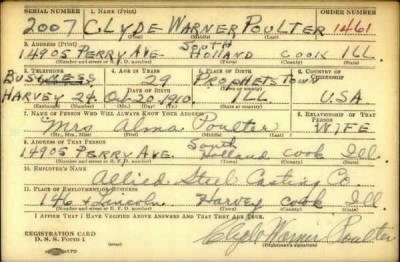 SERIAL NUMBER 1. NAME (Print) ORDER NUMBER
2007 CLYDE WARNER POULTER 1461
(First) (Middle) (Last)
2. ADDRESS (Print)
14905 PERRY AVE. SOUTH HOLLAND COOK ILL.
(Number and street or R. F. D. number) (Town) (County) (State)
3. TELEPHONE 4. AGE IN YEARS 5. PLACE OF BIRTH 6. COUNTRY OF CITIZENSHIP
BUSINESS 29 PROPHETSTOWN
HARVEY 24 DATE OF BIRTH Oct-20-1910. ILL USA
(Exchange) (Number) (Mo.) (Day) (Yr.) (State or country)
7. NAME OF PERSON WHO WILL ALWAYS KNOW YOUR ADDRESS 8. RELATIONSHIP OF THAT PERSON
Mrs Alma Poulter WIFE
(Mr., Mrs., Miss) (First) (Middle) (Last)
9. ADDRESS OF THAT PERSON
14905 PERRY AVE. South Holland Cook Ill.
(Number and street or R. F. D. number) (Town) (County) (State)
10. EMPLOYER'S NAME
Allied Steel Casting Co
11. PLACE OF EMPLOYMENT OR BUSINESS
146 & Lincoln. Harvey Cook Ill
(Number and street or R. F. D. number) (Town) (County) (State)
I AFFIRM THAT I HAVE VERIFIED ABOVE ANSWERS AND THAT THEY ARE TRUE.
REGISTRATION CARD
D. S. S. Form 1
Clyde Warner Poulter
(Registrant's signature)